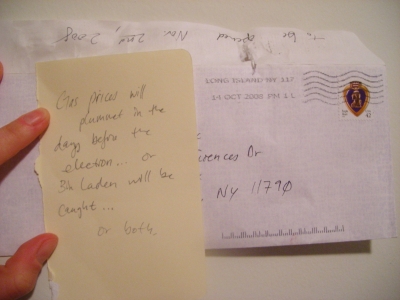 To be opened Nov. 2nd, 2008
LONG ISLAND NY 117
14 OCT 2008 PM 1 L
Gas prices will
plummet in the
days before the
election... or
Bin Laden will be
caught...
or both.
Dr
NY 11790